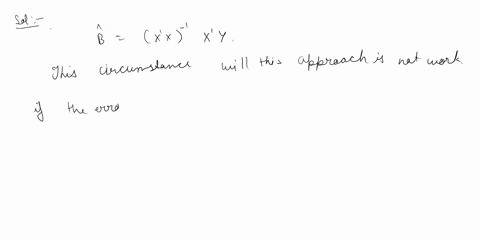 Sol:-
B̂ = (X'X)⁻¹ X'Y.
This circumstance will this approach is not work
if the erro